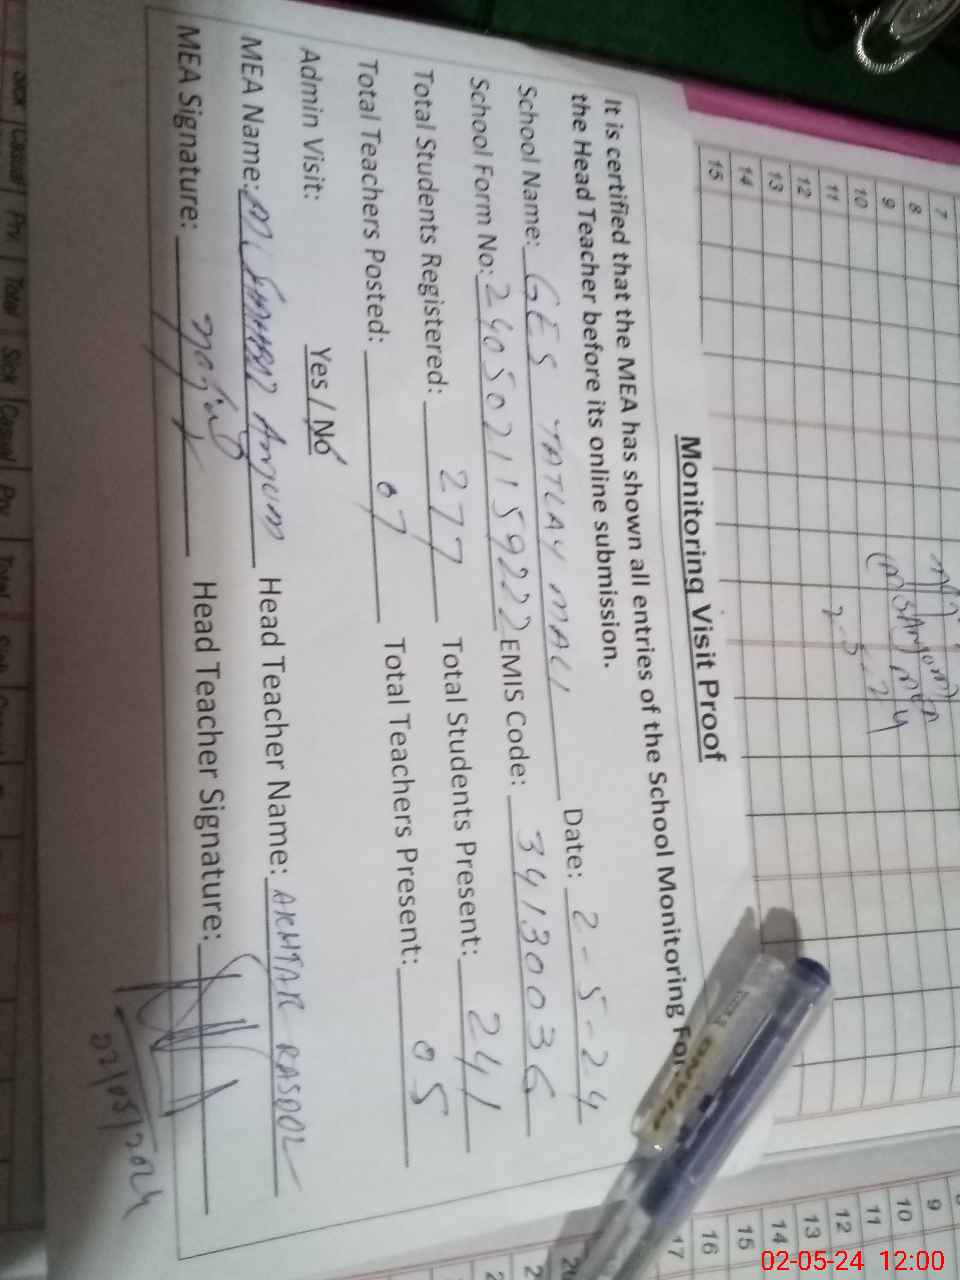 Monitoring Visit Proof
It is certified that the MEA has shown all entries of the School Monitoring For
the Head Teacher before its online submission.
School Name: GES TATLAY MALI Date: 2-5-24
School Form No: 2405021159222 EMIS Code: 34130036
Total Students Registered: 277 Total Students Present: 241
Total Teachers Posted: 07 Total Teachers Present: 05
Admin Visit: Yes / No
MEA Name: M. Anjum Head Teacher Name: AKHTAR RASOOL
MEA Signature: Head Teacher Signature:
02/05/2024
7
8
9
10
11
12
13
14
15
2-5-24
9
10
11
12
13
14
15
16
17
PIANO
Sick Casual Prv Total Sick Casual Prv Total
02-05-24 12:00